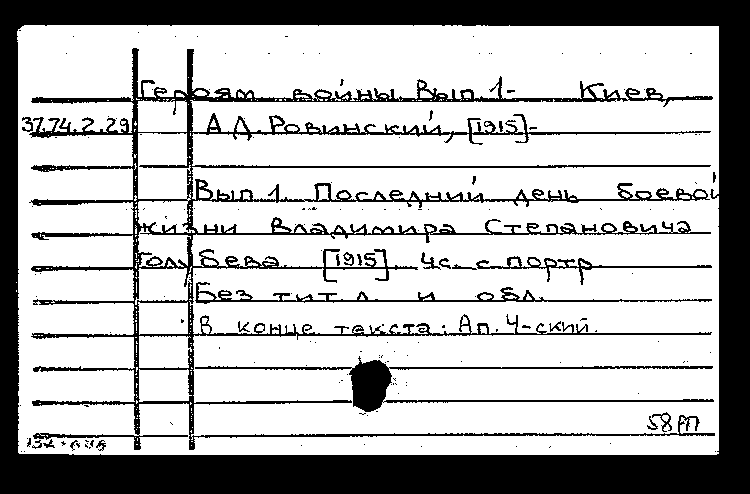 Героям войны. Вып. 1- Киев,
37.74.2.29 А.Д. Ровинский, [1915]-
Вып. 1. Последний день боевой
жизни Владимира Степановича
Голубева. [1915]. 4с. с портр.
Без тит. л. и обл.
В конце текста: Ап. Ч-ский.
58 РП